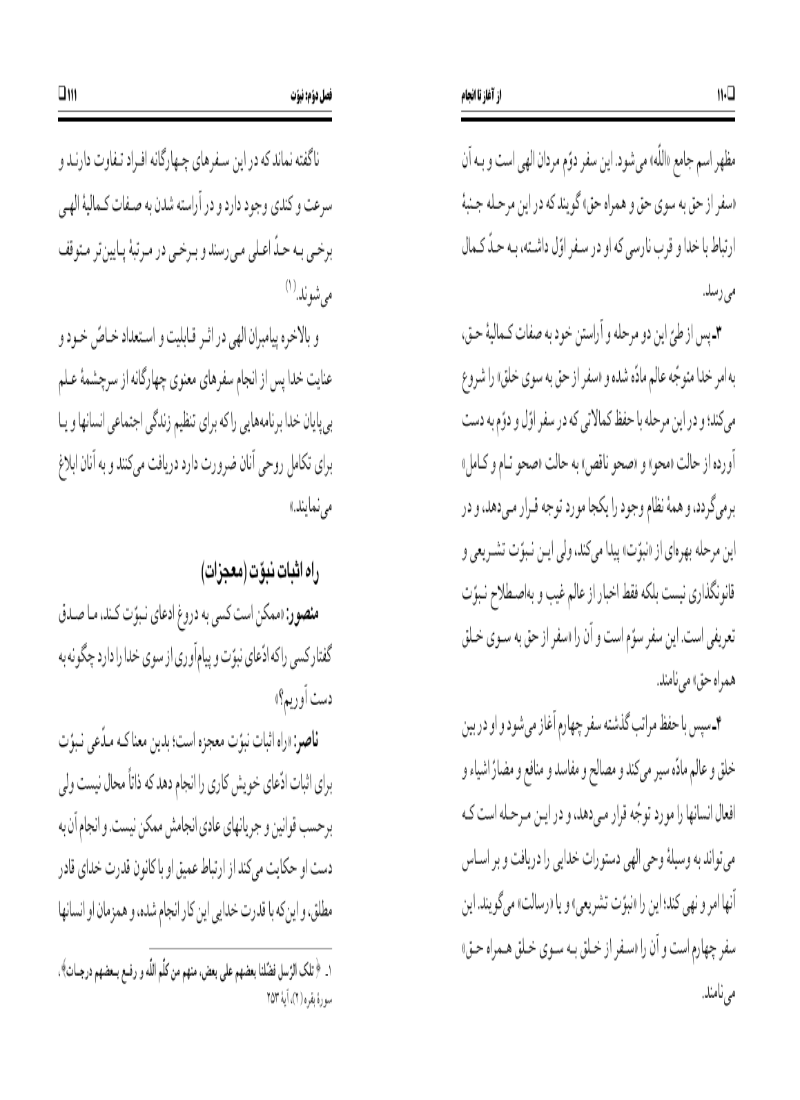 ❑ ۱۱۰ از آغاز تا انجام
مظهر اسم جامع «اللّه» می‌شود. این سفر دوّم مردان الهی است و به آن
«سفر از حق به سوی حق و همراه حق» گویند که در این مرحله جنبهٔ
ارتباط با خدا و قرب نارسی که او در سفر اوّل داشته، به حدّ کمال
می‌رسد.
۳ـ پس از طیّ این دو مرحله و آراستن خود به صفات کمالیهٔ حق،
به امر خدا متوجّه عالم مادّه شده و «سفر از حق به سوی خلق» را شروع
می‌کند؛ و در این مرحله با حفظ کمالاتی که در سفر اوّل و دوّم به دست
آورده از حالت «محو» و «صحو ناقص» به حالت «صحو تام و کامل»
برمی‌گردد، و همهٔ نظام وجود را یکجا مورد توجه قرار می‌دهد، و در
این مرحله بهره‌ای از «نبوّت» پیدا می‌کند، ولی این نبوّت تشریعی و
قانونگذاری نیست بلکه فقط اخبار از عالم غیب و به‌اصطلاح نبوّت
تعریفی است. این سفر سوّم است و آن را «سفر از حق به سوی خلق
همراه حق» می‌نامند.
۴ـ سپس با حفظ مراتب گذشته سفر چهارم آغاز می‌شود و او در بین
خلق و عالم مادّه سیر می‌کند و مصالح و مفاسد و منافع و مضارّ اشیاء و
افعال انسانها را مورد توجّه قرار می‌دهد، و در این مرحله است که
می‌تواند به وسیلهٔ وحی الهی دستورات خدایی را دریافت و بر اساس
آنها امر و نهی کند؛ این را «نبوّت تشریعی» و یا «رسالت» می‌گویند. این
سفر چهارم است و آن را «سفر از خلق به سوی خلق همراه حق»
می‌نامند.
فصل دوّم: نبوّت ۱۱۱ ❑
ناگفته نماند که در این سفرهای چهارگانه افراد تفاوت دارند و
سرعت و کندی وجود دارد و در آراسته شدن به صفات کمالیهٔ الهی
برخی به حدّ اعلی می‌رسند و برخی در مرتبهٔ پایین‌تر متوقف
می‌شوند.(۱)
و بالاخره پیامبران الهی در اثر قابلیت و استعداد خاصّ خود و
عنایت خدا پس از انجام سفرهای معنوی چهارگانه از سرچشمهٔ علم
بی‌پایان خدا برنامه‌هایی را که برای تنظیم زندگی اجتماعی انسانها و یا
برای تکامل روحی آنان ضرورت دارد دریافت می‌کنند و به آنان ابلاغ
می‌نمایند.»
راه اثبات نبوّت (معجزات)
منصور: «ممکن است کسی به دروغ ادعای نبوّت کند، ما صدق
گفتار کسی را که ادّعای نبوّت و پیام‌آوری از سوی خدا را دارد چگونه به
دست آوریم؟»
ناصر: «راه اثبات نبوّت معجزه است؛ بدین معنا که مدّعی نبوّت
برای اثبات ادّعای خویش کاری را انجام دهد که ذاتاً محال نیست ولی
برحسب قوانین و جریانهای عادی انجامش ممکن نیست. و انجام آن به
دست او حکایت می‌کند از ارتباط عمیق او با کانون قدرت خدای قادر
مطلق، و این‌که با قدرت خدایی این کار انجام شده، و همزمان او انسانها
۱ـ ﴿تلک الرّسل فضّلنا بعضهم علی بعض، منهم من کلّم اللّه و رفع بعضهم درجات﴾،
سورهٔ بقره (۲)، آیهٔ ۲۵۳